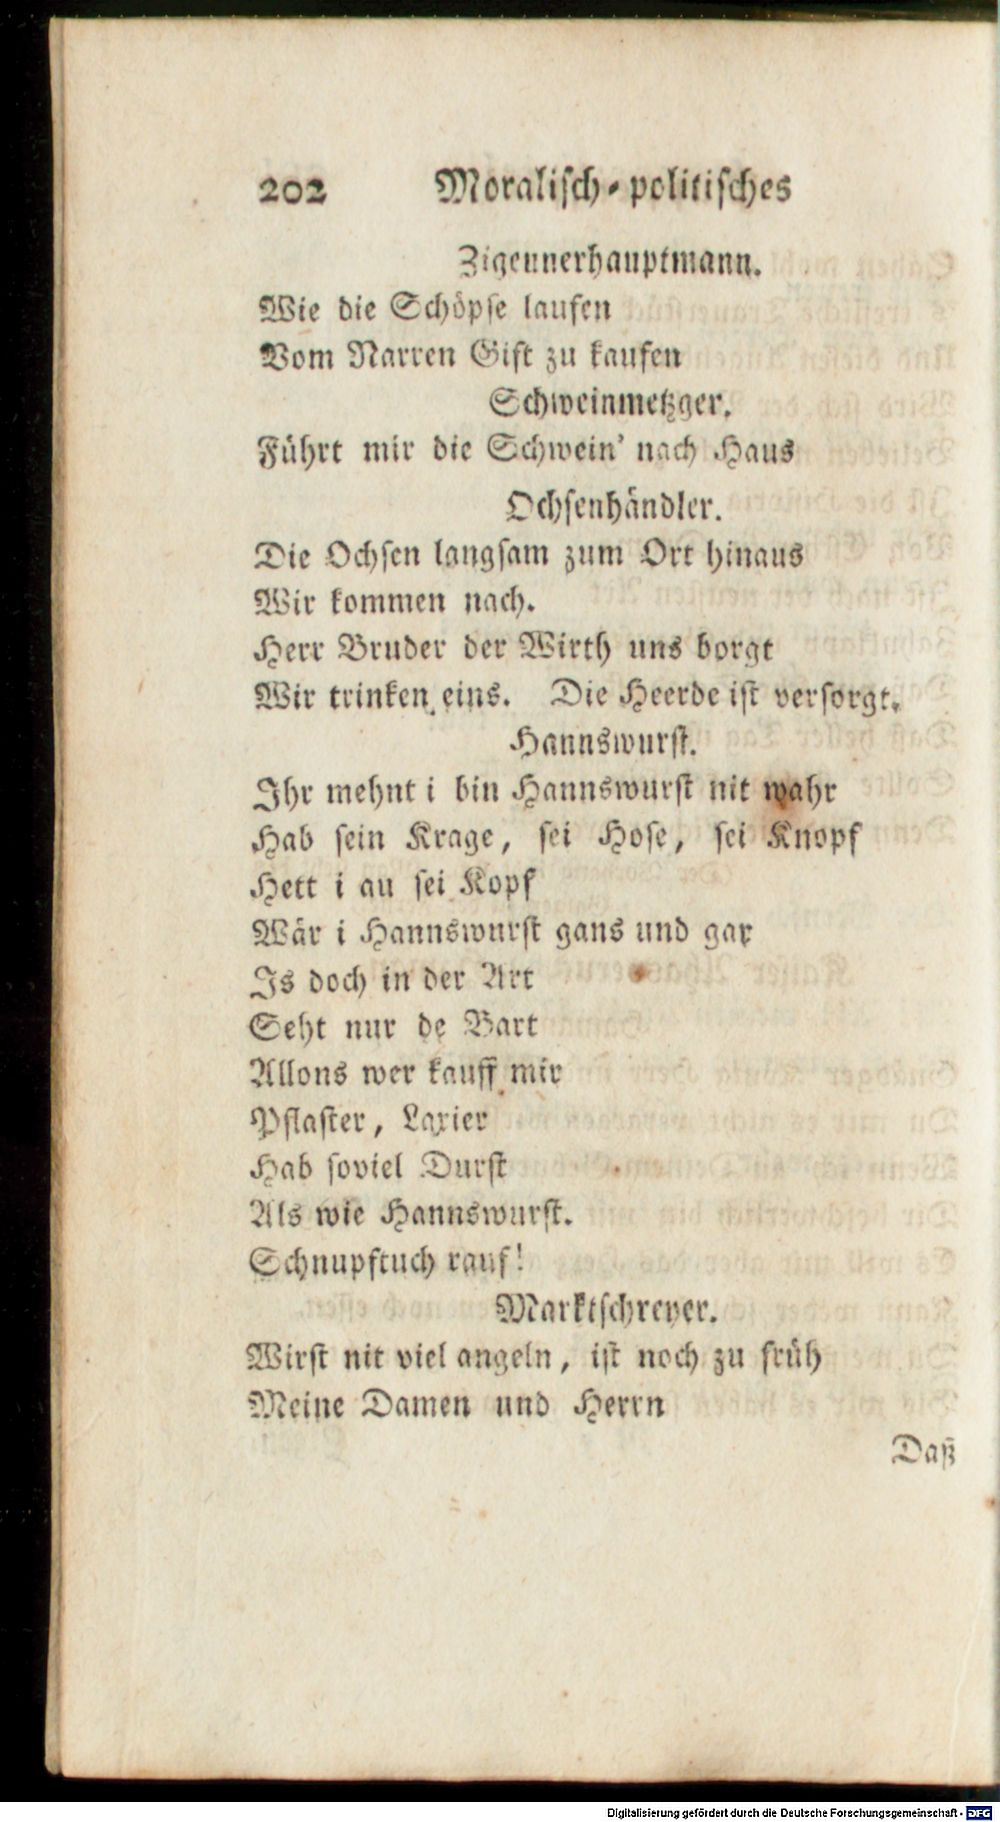 202 Moralisch-politisches
Zigeunerhauptmann.
Wie die Schöpse laufen
Vom Narren Gift zu kaufen
Schweinmetzger.
Führt mir die Schwein' nach Haus
Ochsenhändler.
Die Ochsen langsam zum Ort hinaus
Wir kommen nach.
Herr Bruder der Wirth uns borgt
Wir trinken eins. Die Heerde ist versorgt.
Hannswurst.
Ihr mehnt i bin Hannswurst nit wahr
Hab sein Krage, sei Hose, sei Knopf
Hett i au sei Kopf
Wär i Hannswurst gans und gar
Is doch in der Art
Seht nur de Bart
Allons wer kauff mir
Pflaster, Laxier
Hab soviel Durst
Als wie Hannswurst.
Schnupftuch rauf!
Marktschreyer.
Wirst nit viel angeln, ist noch zu früh
Meine Damen und Herrn
Daß
Digitalisierung gefördert durch die Deutsche Forschungsgemeinschaft - DFG